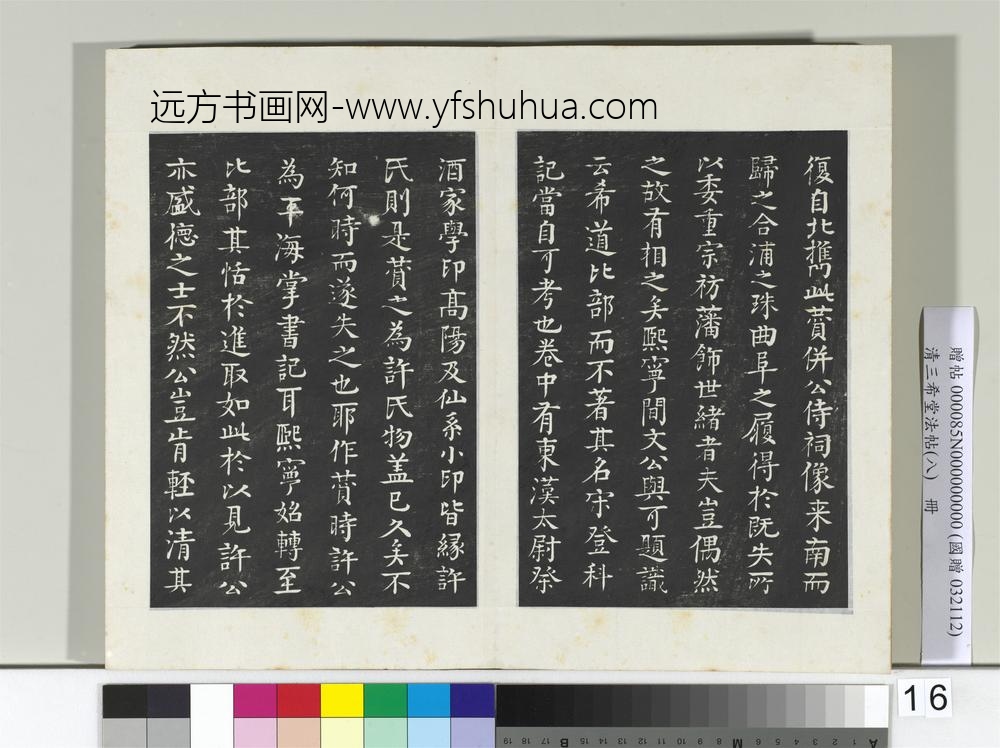 远方书画网-www.yfshuhua.com
復自北攜此賛併公侍祠像来南而
歸之合浦之珠曲阜之履得於既失所
以委重宗祊藩飾世緒者夫豈偶然
之故有相之矣熙寧間文公與可題識
云希道比部而不著其名宋登科
記當自可考也卷中有東漢太尉祭
酒家學印高陽及仙系小印皆縁許
氏則是賛之為許氏物盖已久矣不
知何時而遂失之也耶作賛時許公
為平海掌書記耳熙寧始轉至
比部其恬於進取如此於以見許公
亦盛徳之士不然公豈肯輕以清其
贈帖 000085N000000000 (國贈 032112)
清三希堂法帖(八) 冊
16